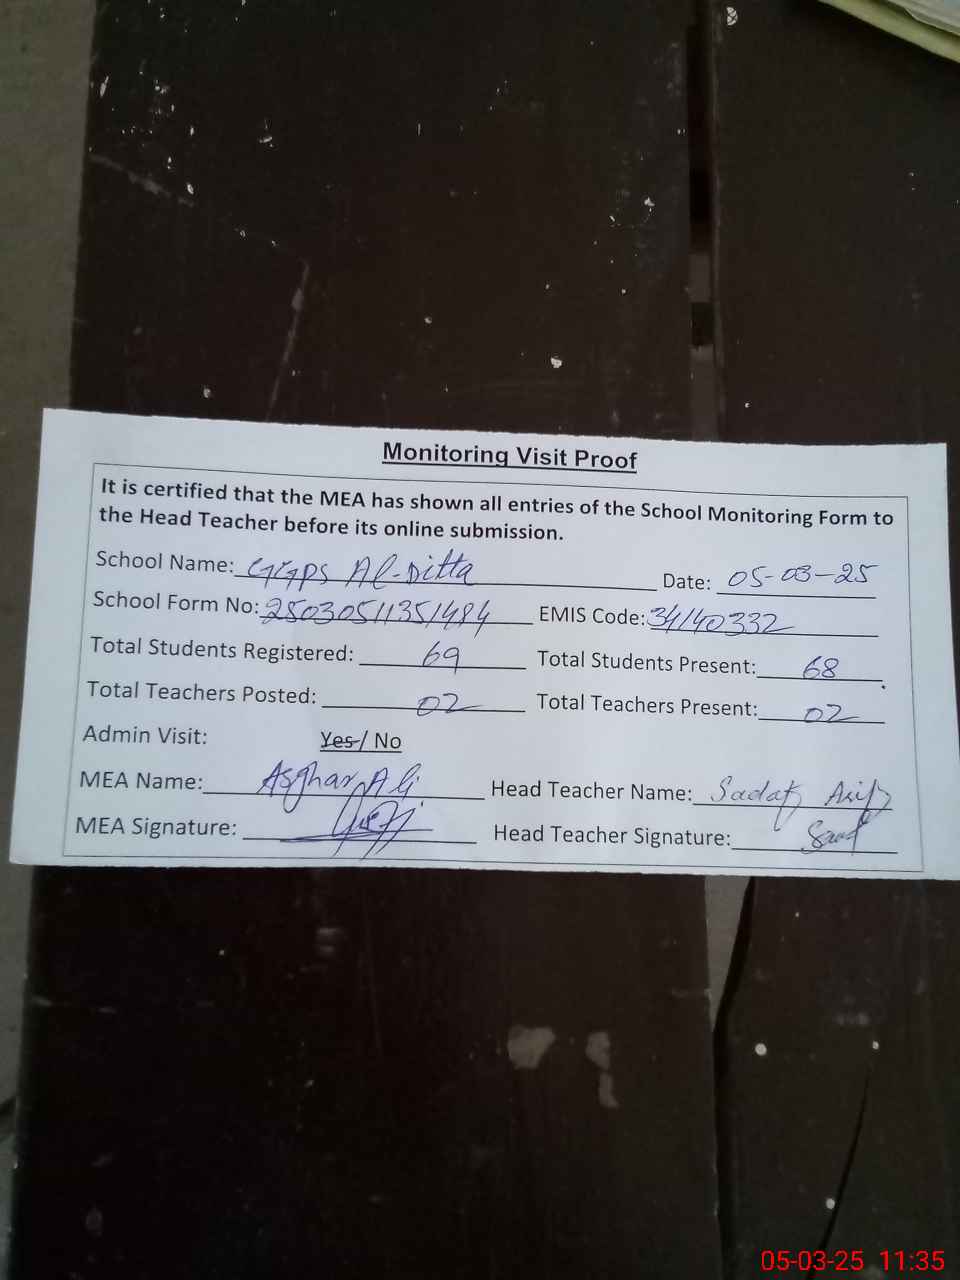 Monitoring Visit Proof
It is certified that the MEA has shown all entries of the School Monitoring Form to
the Head Teacher before its online submission.
School Name: GGPS Al-Ditta Date: 05-03-25
School Form No: 25030511351484 EMIS Code: 34140332
Total Students Registered: 69 Total Students Present: 68
Total Teachers Posted: 02 Total Teachers Present: 02
Admin Visit: Yes / No
MEA Name: Asghar Ali Head Teacher Name: Sadaf Asif
MEA Signature: Head Teacher Signature:
05-03-25 11:35